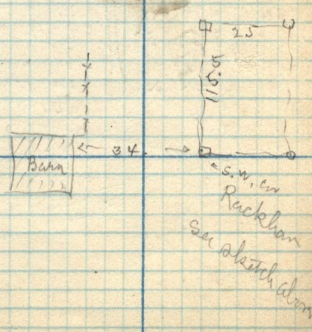 25
115.5
Barn
34
S.W. cn
Rackham
See sketch above